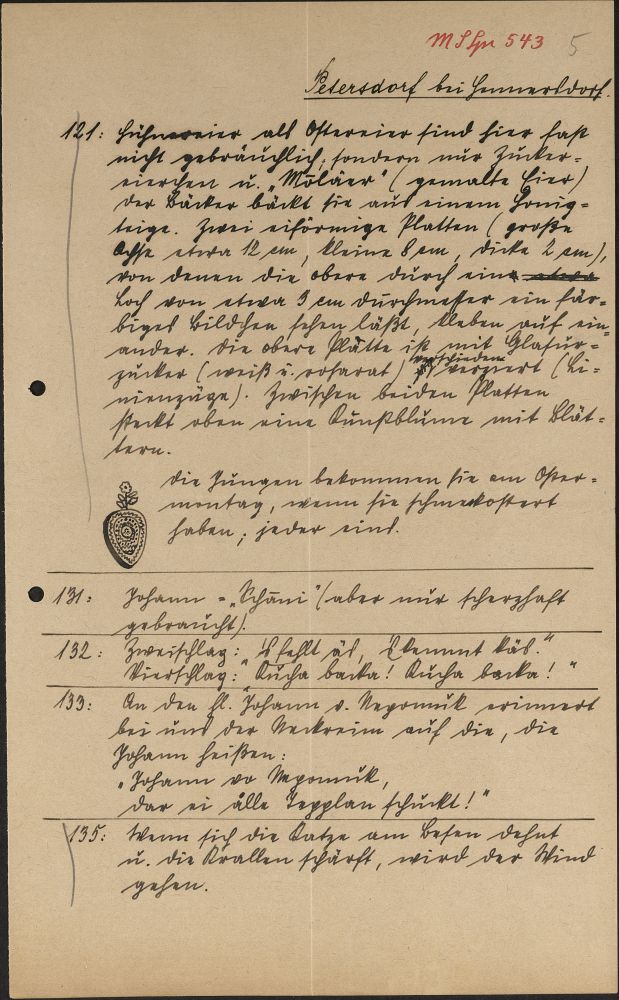 M S Spr 543 5
Petersdorf bei Hennersdorf.
121: Hühnereier als Ostereier sind hier fast
nicht gebräuchlich, sondern nur Zucker-
eierchen u. "Môläer" (gemalte Eier)
der Bäcker bäckt sie aus einem Honig-
teige. Zwei eiförmige Platten (große
Achse etwa 12 cm, kleine 8 cm, Dicke 2 cm),
von denen die obere durch ein
Loch von etwa 3 cm Durchmesser ein far-
biges Bildchen sehen läßt, kleben auf ein-
ander. Die obere Platte ist mit Glasur-
zucker (weiß u. rosarot) verschieden verziert (Li-
nienzüge). Zwischen beiden Platten
steckt oben eine Kunstblume mit Blät-
tern.
Die Jungen bekommen sie am Oster-
montag, wenn sie schmeckostert
haben; jeder eins.
131: Johann = "Schani" (aber nur scherzhaft
gebraucht).
132: Zweischlag: "'s fehlt äs, 's kemmt käs."
Vierschlag: "Kucha backa! Kucha backa!"
133: An den hl. Johann v. Nepomuk erinnert
bei uns der Neckreim auf die, die
Johann heißen:
"Johann vo Nepomuk,
dar ei âlle Tepplan schuckt!"
135: Wenn sich die Katze am Besen dehnt
u. die Krallen schärft, wird der Wind
gehen.